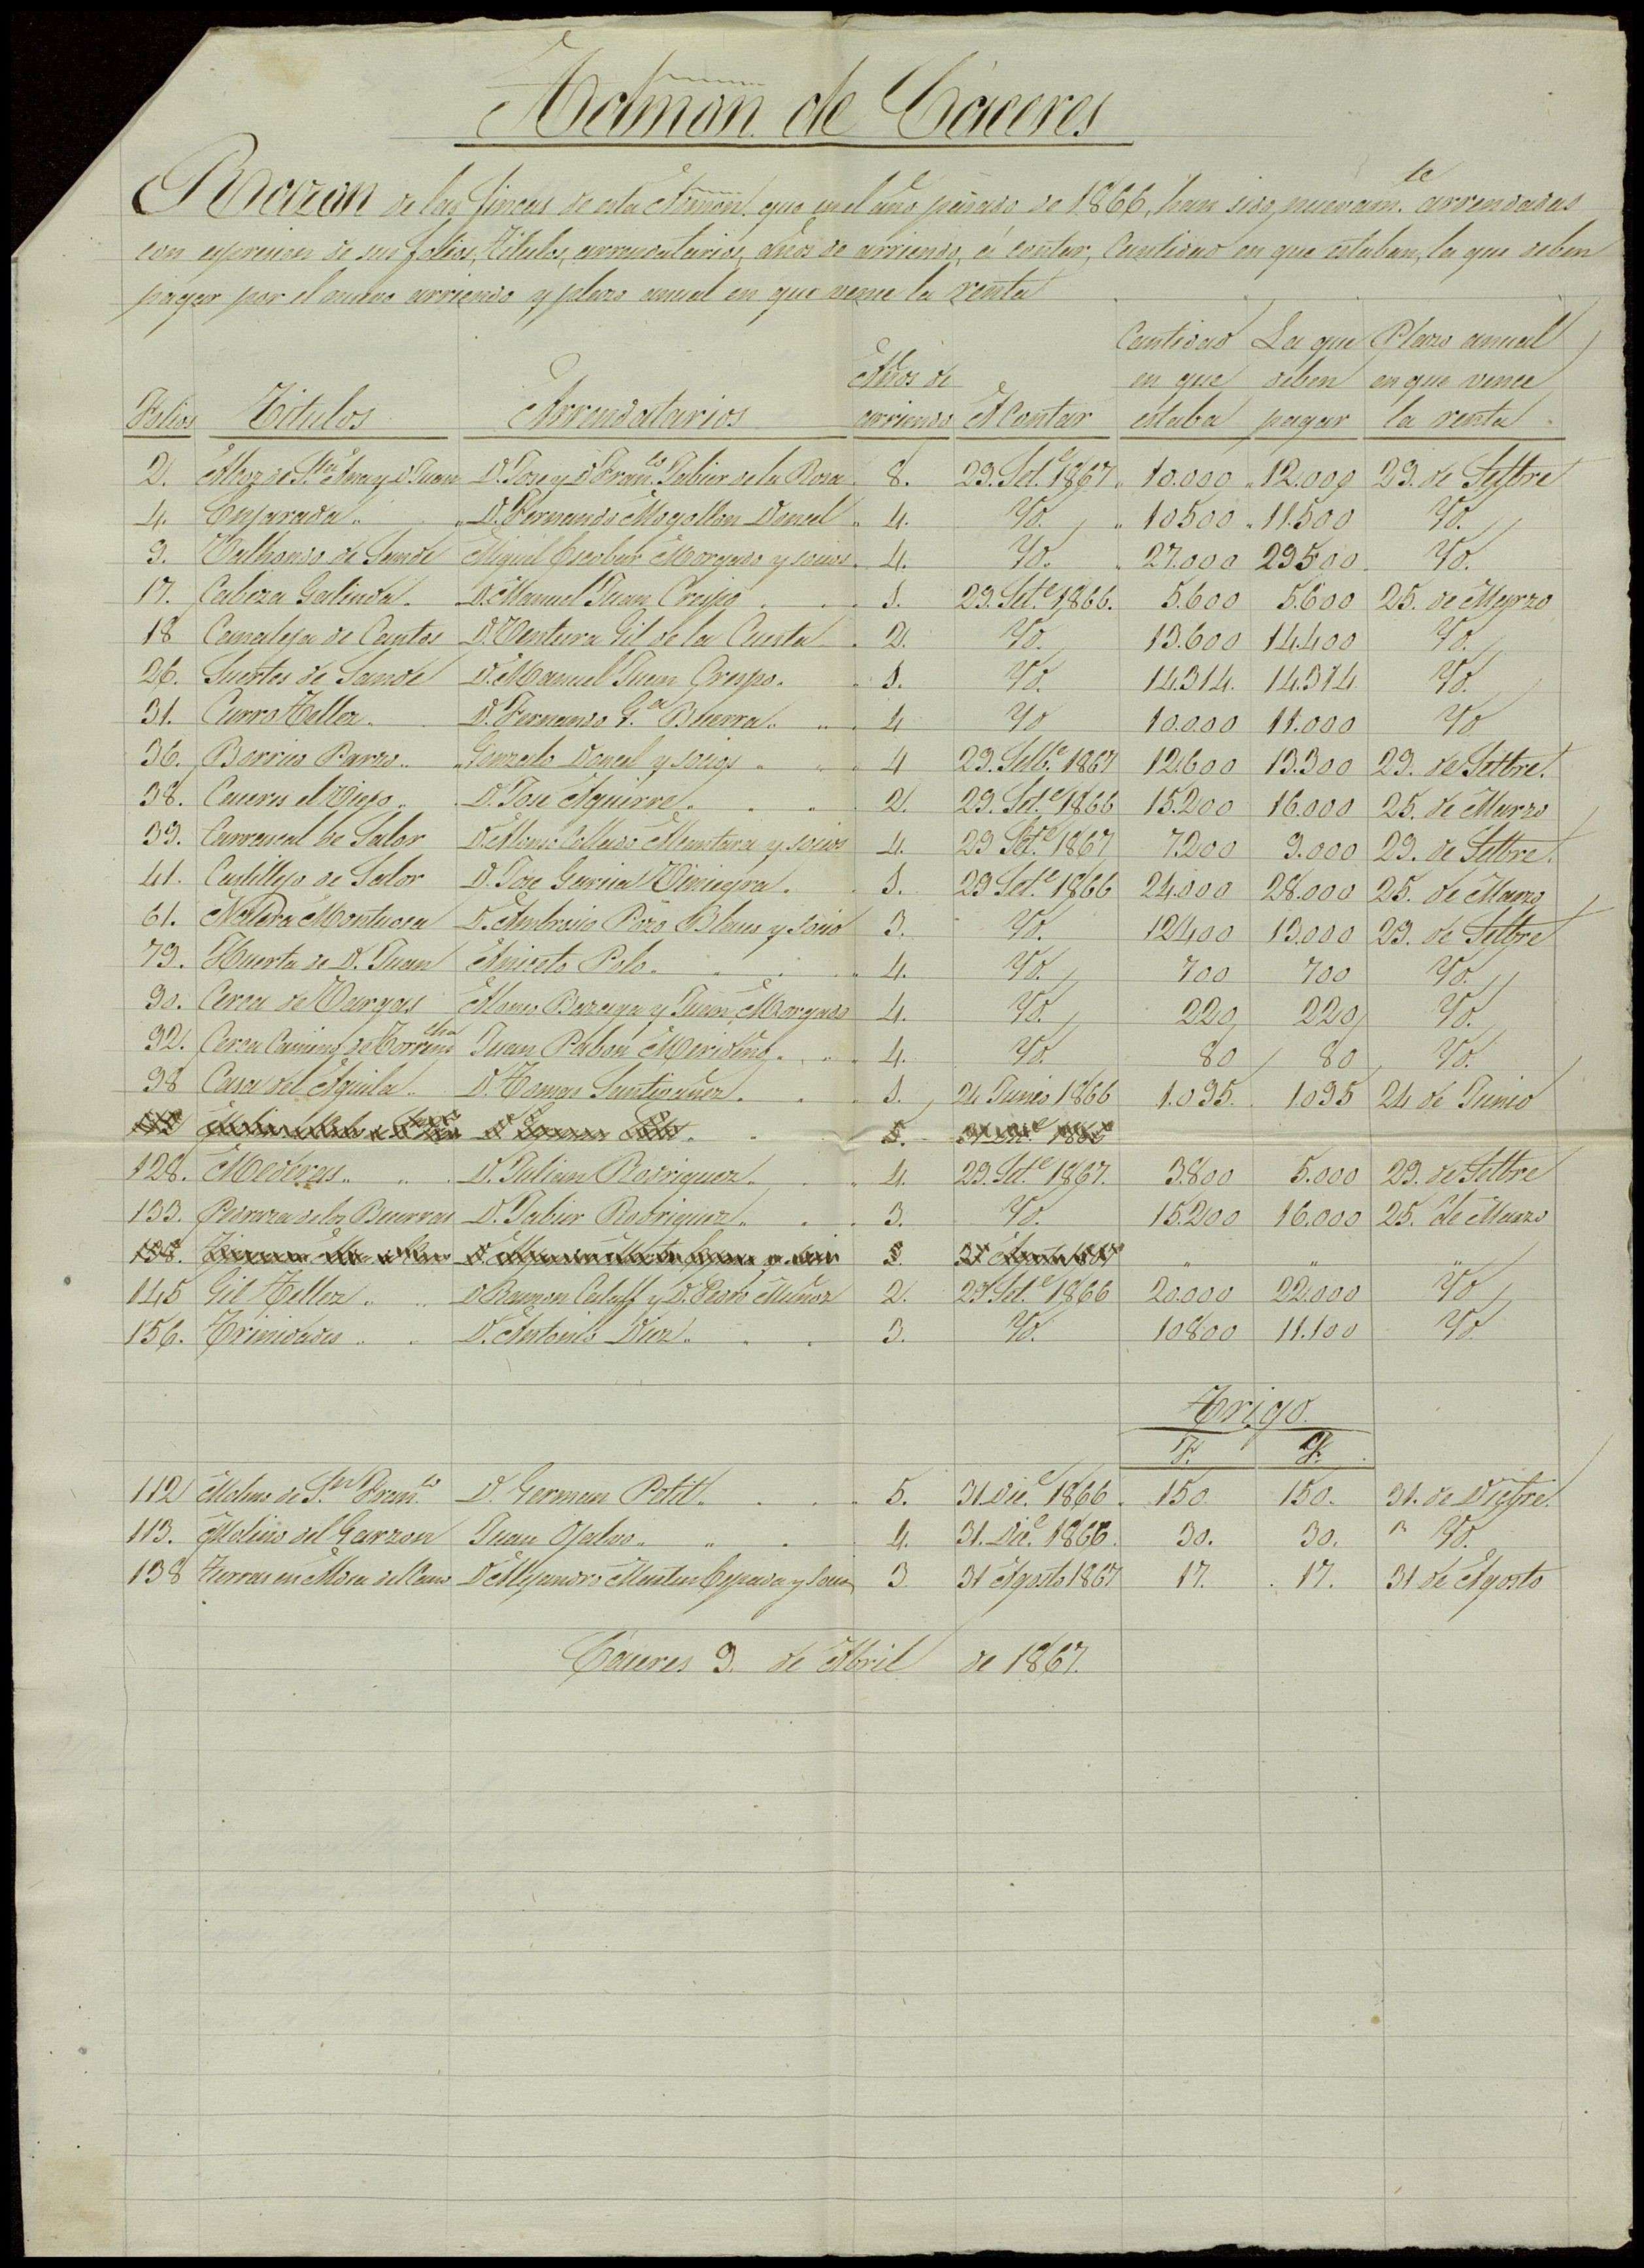 Admon. de Cáceres
Razon de las fincas de esta Admon. que en el año pasado de 1866, han sido nuevamte. arrendadas
con espresion de sus folios, titulos, arrendatarios, años de arriendo, á contar, Cantidad en que estaban, la que deben
pagar por el nuevo arriendo y plazo anual en que vence la renta
Folios Titulos Arrendatarios Años de arriendo A contar Cantidad en que estaba La que deben pagar Plazo anual en que vence la renta
2. de Sta. Ana y D. Juan D. Jose y D. Franco. Jabier de la Rosa 8. 29. Set.e 1867 10.000 12.000 29. de Settre
4. Enjarada D. Fernando Mogollon Doncel 4. Yd. 10500 11.500 Yd.
9. Valhondo de Sande Miguel Escobar Morgado y socios 4. Yd. 27.000 29500 Yd.
17. Cabeza Galinda D. Manuel Juan Crespo 1. 29. Set.e 1866. 5.600 5.600 25. de Marzo
18 Canaleja de Cantos D. Ventura Gil de la Cuesta 2. Yd. 13.600 14.400 Yd.
26. Suertes de Sande D. Manuel Juan Crespo. 1. Yd. 14.314. 14.314 Yd.
31. Curro Tellez. D. Fernando G.a Becerra. 4 Yd 10.000 11.000 Yd
36. Borrico Pardo Gonzalo Doncel y socios 4 29. Setb.e 1867 12.600 13.300 29. de Settre.
38. Caceres el Viejo D. Jose Aguirre. 2. 29. Set.e 1866 15.200 16.000 25. de Marzo
39. Carrascal de Salor D. Alonso Collado y socios 4. 29 Set.e 1867 7.200 9.000 29. de Settre.
41. Castillejo de Salor D. Jose Garcia Viniegra. 1. 29 Set.e 1866 24.000 28.000 25. de Marzo
61. Natera Montuosa D. Ambrosio Pozo Blanco y socio 3. Yd. 12400 13.000 29. de Settre
79. Huerta de D. Juan Aniceto Polo. 4. Yd. 700 700 Yd.
90. Cerca de Vargas y Juan Morgado 4. Yd. 220 220 Yd.
92. Cerca Camino de Torremcha Juan Pabon Merideño. 4. Yd. 80 80 Yd.
98 Casa del Aguila D. Tomas Santibañez. 1. 24 Junio 1866 1.095. 1.095 24 de Junio
128. Mederas D. Julian Rodriguez 4. 29. Set.e 1867. 3.800 5.000 29. de Settre
133. Pedraza de los Becerras D. Jabier Rodriguez 3. Yd. 15.200 16.000 25. de Marzo
145 Gil Tellez D. Ramon Calaff y D. Pedro Muñoz 2. 29 Set.e 1866 20.000 22.000 Yd
156. Trinidades D. Antonio Diez 3. Yd. 10800 11.100 Yd.
Trigo.
F. F.
112 Molino de Sn. Franco. D. German Petit 5. 31. Dic.e 1866 150 150. 31. de Dictre.
113. Molino del Garzon Juan Ojalvo 4. 31. Dic.e 1866. 30. 30. Yd.
138 Tierras en Mesa del Cano D. Alejandro Montes Cepeda y Socio 3 31 Agosto 1867 17. 17. 31 de Agosto
Cáceres 9. de Abril de 1867.